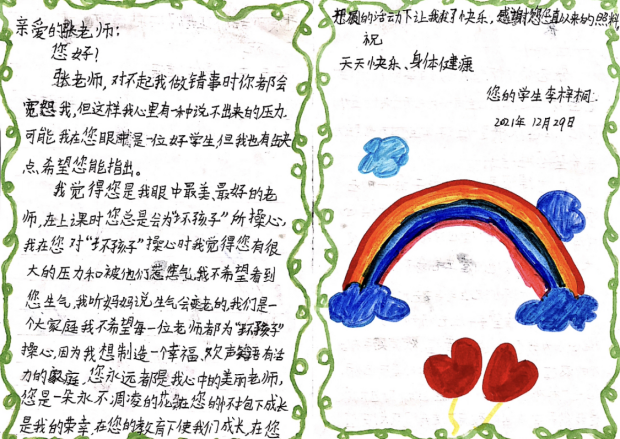 亲爱的张老师:
您好?
张老师,对不起我做错事时你都会
宽恕我,但这样我心里有一种说不出来的压力
可能我在您眼里是一位好学生但我也有缺
点,希望您能指出。
我觉得您是我眼中最美、最好的老
师,在上课时您总是会为“坏孩子”所操心,
我在您对“坏孩子”操心时我觉得您有很
大的压力和被他们惹焦气,我不希望看到
您生气,我听妈妈说生气会变老的,我们是一
个大家庭我不希望每一位老师都为“坏孩子”
操心,因为我想制造一个幸福、欢声笑语有活
力的家庭,您永远都是我心中的美丽老师,
您是一朵永不凋凌的花,在您的怀抱下成长
是我的荣幸,在您的教育下使我们成长,在您
的活动下让我们快乐,感谢您一直以来的照料,
祝
天天快乐、身体健康
您的学生李梓桐
2021年12月29日